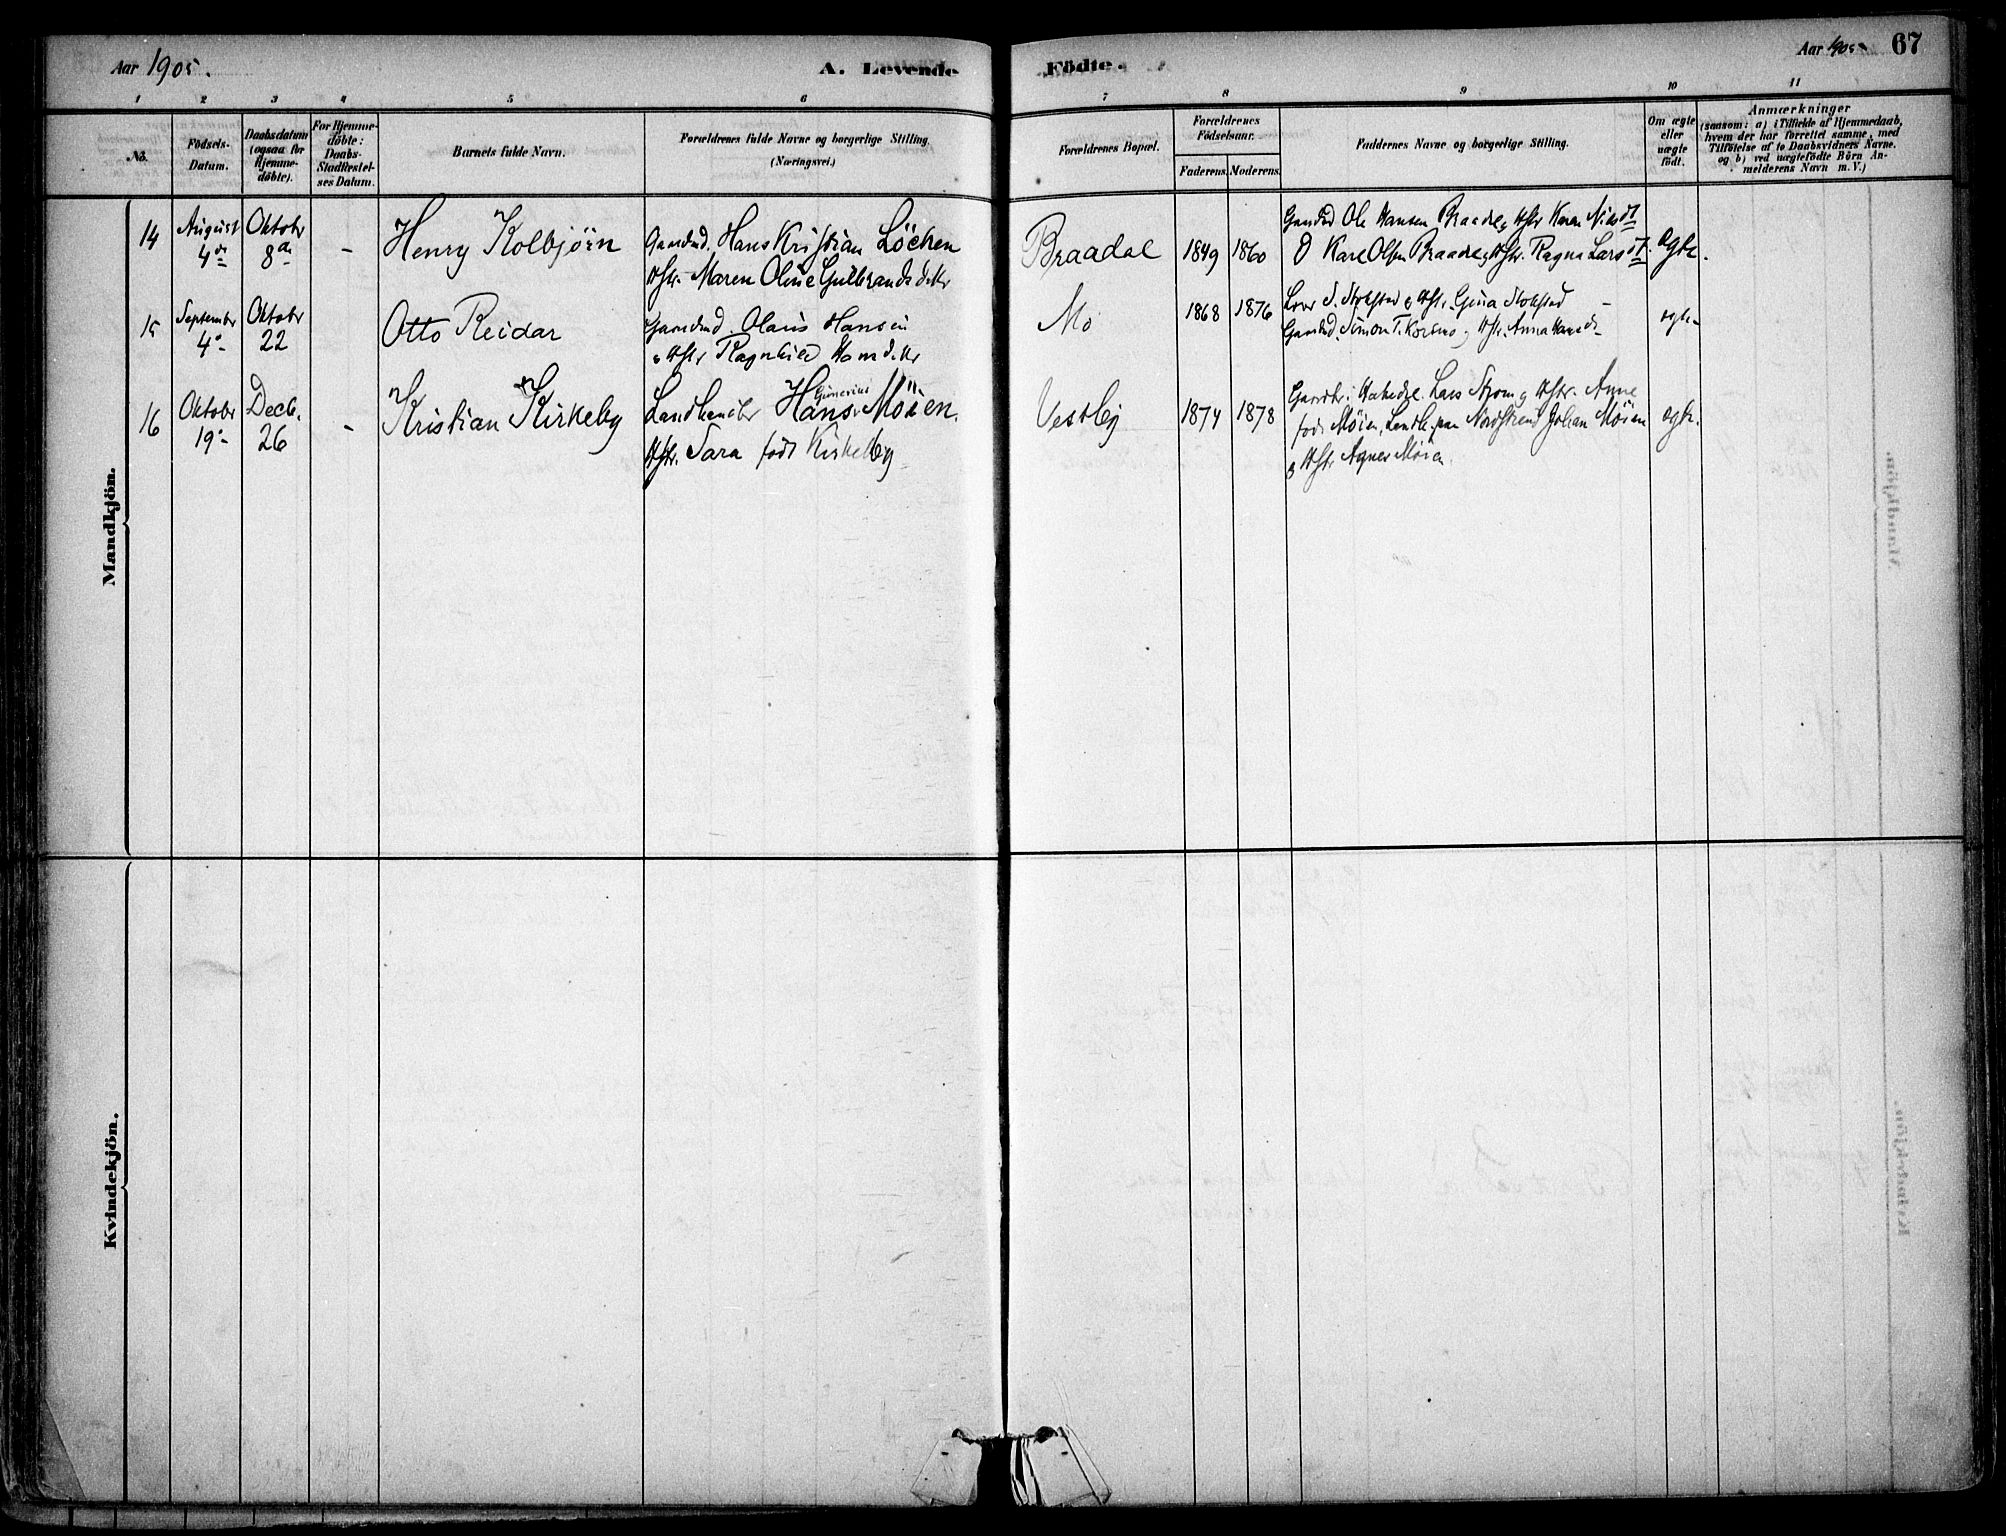 Aar 1905.
A. Levende
Födte.
Aar 1905
67
1 2 3 4 5 6 7 8 9 10 11
No.
Födsels-
Datum.
Daabsdatum
(ogsaa for
Hjemme-
döbte).
For Hjemme-
döbte:
Daabs-
Stadfæstel-
ses Datum.
Barnets fulde Navn.
Forældrenes fulde Navne og borgerlige Stilling.
(Næringsvei.)
Forældrenes Bopæl.
Forældrenes
Födselsaar.
Faderens. Moderens.
Faddernes Navne og borgerlige Stilling.
Om ægte
eller
uægte
födt.
Anmærkninger
(saasom: a) i Tilfælde af Hjemmedaab,
hvem der har forrettet samme, med
Tilföielse af to Daabsvidners Navne.
og b) ved uægtefödte Börn An-
melderens Navn m. V.)
Mandkjön.
14 August 4de Oktobr 8de - Henry Kolbjørn
Gaardmd. Hans Kristian Löchen
Hstr. Maren Oline Gulbrandsdttr
Braadal 1849 1860
Gaardmd Ole Hansen Braadal, Hstr Karen Nilsdt
Karl Olsen Braadal, Hstr. Ragna Larsdt. ægte.
15 September 4de Oktobr 22 Otto Reidar
Gaardmd. Olaus Hansen
Hstr Ragnhild
Mo 1868 1876
Hstr. Gina
Gaardmd. Simon T. Korsmo, Hstr. Anna ægte
16 Oktobr 19de Decb. 26 - Kristian Kirkeby
Landhandler Hans Gunerius Möien.
Hstr. Sara födt Kirkeby
Vestby 1874 1878
Lars Strom Hstr. Anne
født Möien, Landh. paa Nordstrand Johan Möien
Hstr Agnes Möien. ægte.
Kvindekjön.